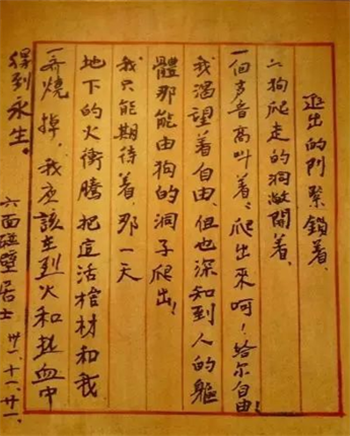 進出的门緊鎖着、
狗爬走的洞敞開着、
一個声音高叫着、爬出來呵！给尔自由！
我渴望着自由、但也深知到人的軀
體那能由狗的洞子爬出！
我只能期待着、那一天
地下的火衝騰把這活棺材和我
一齊燒掉、我应該在烈火和热血中
得到永生。
六面碰壁居士 卅一、十一、廿一、